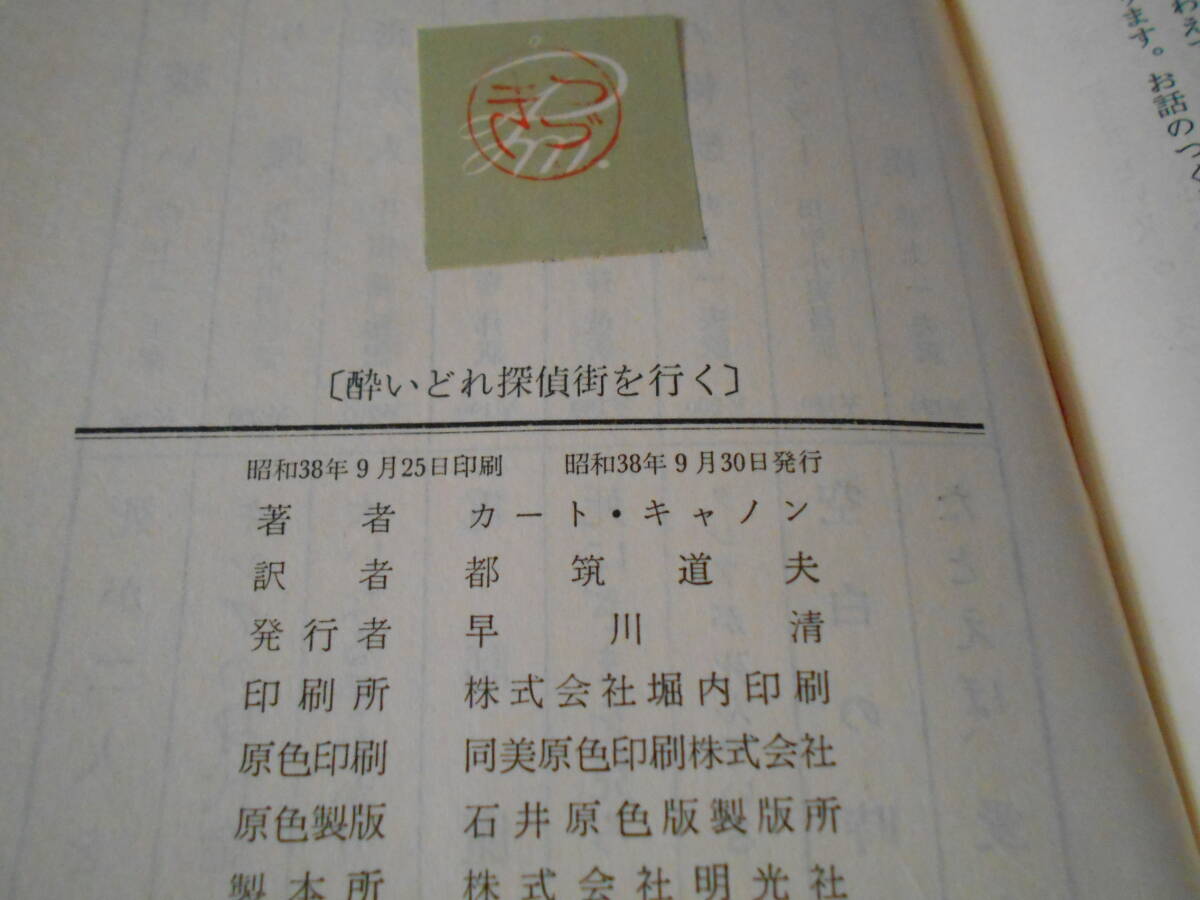 つづき
〔酔いどれ探偵街を行く〕
昭和38年9月25日印刷 昭和38年9月30日発行
著者 カート・キャノン
訳者 都筑道夫
発行者 早川清
印刷所 株式会社堀内印刷
原色印刷 同美原色印刷株式会社
原色製版 石井原色版製版所
製本所 株式会社明光社
ます。お話のつ